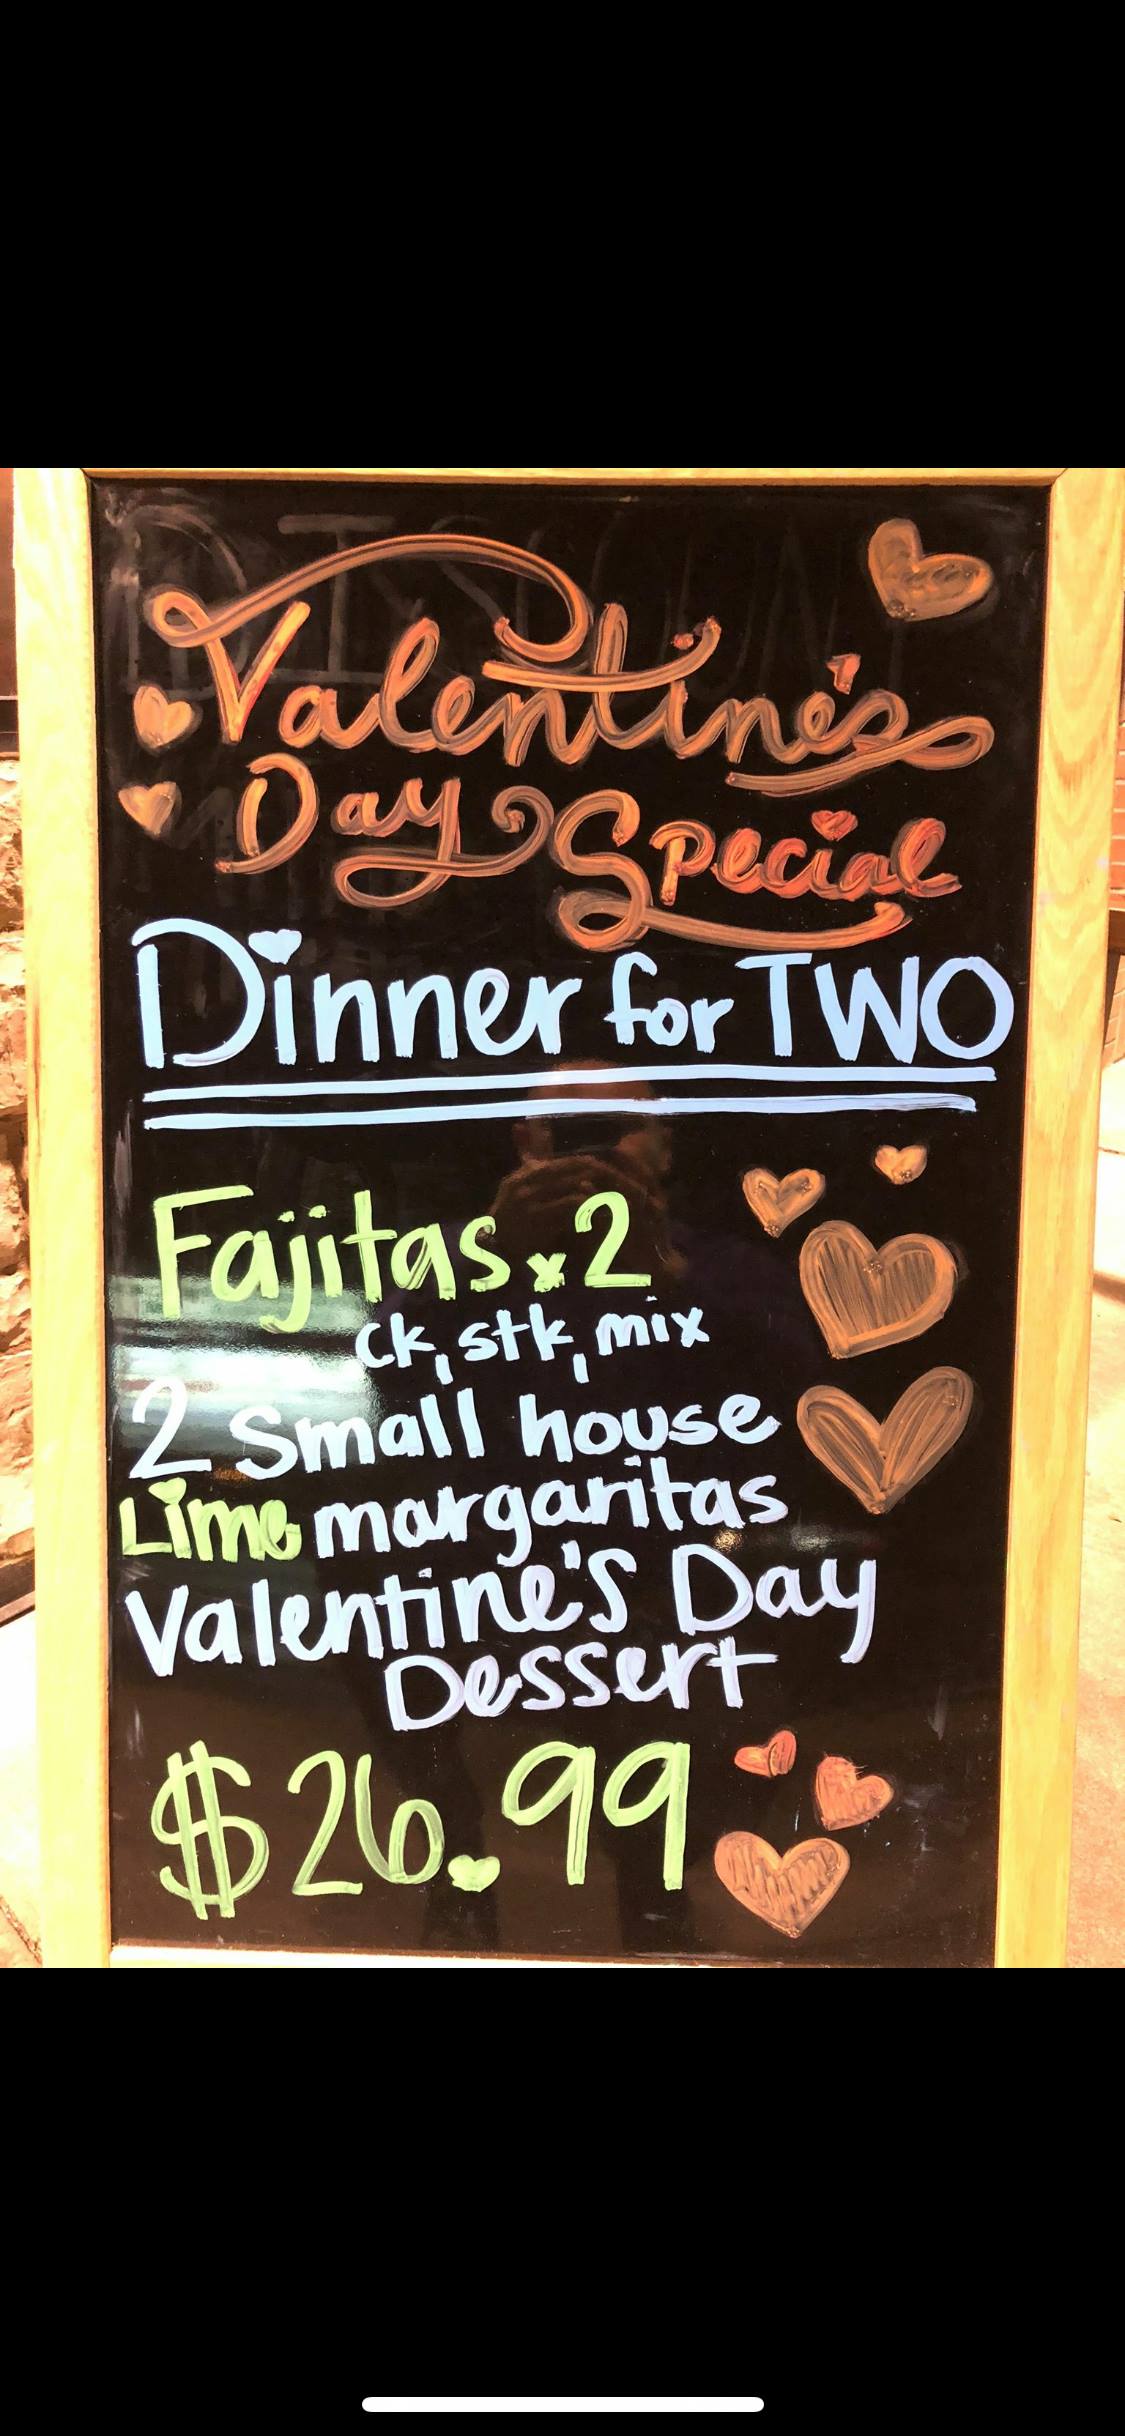 Valentine's
Day Special
Dinner for TWO
Fajitas x 2
ck, stk, mix
2 Small house
Lime margaritas
Valentine's Day
Dessert
$26.99